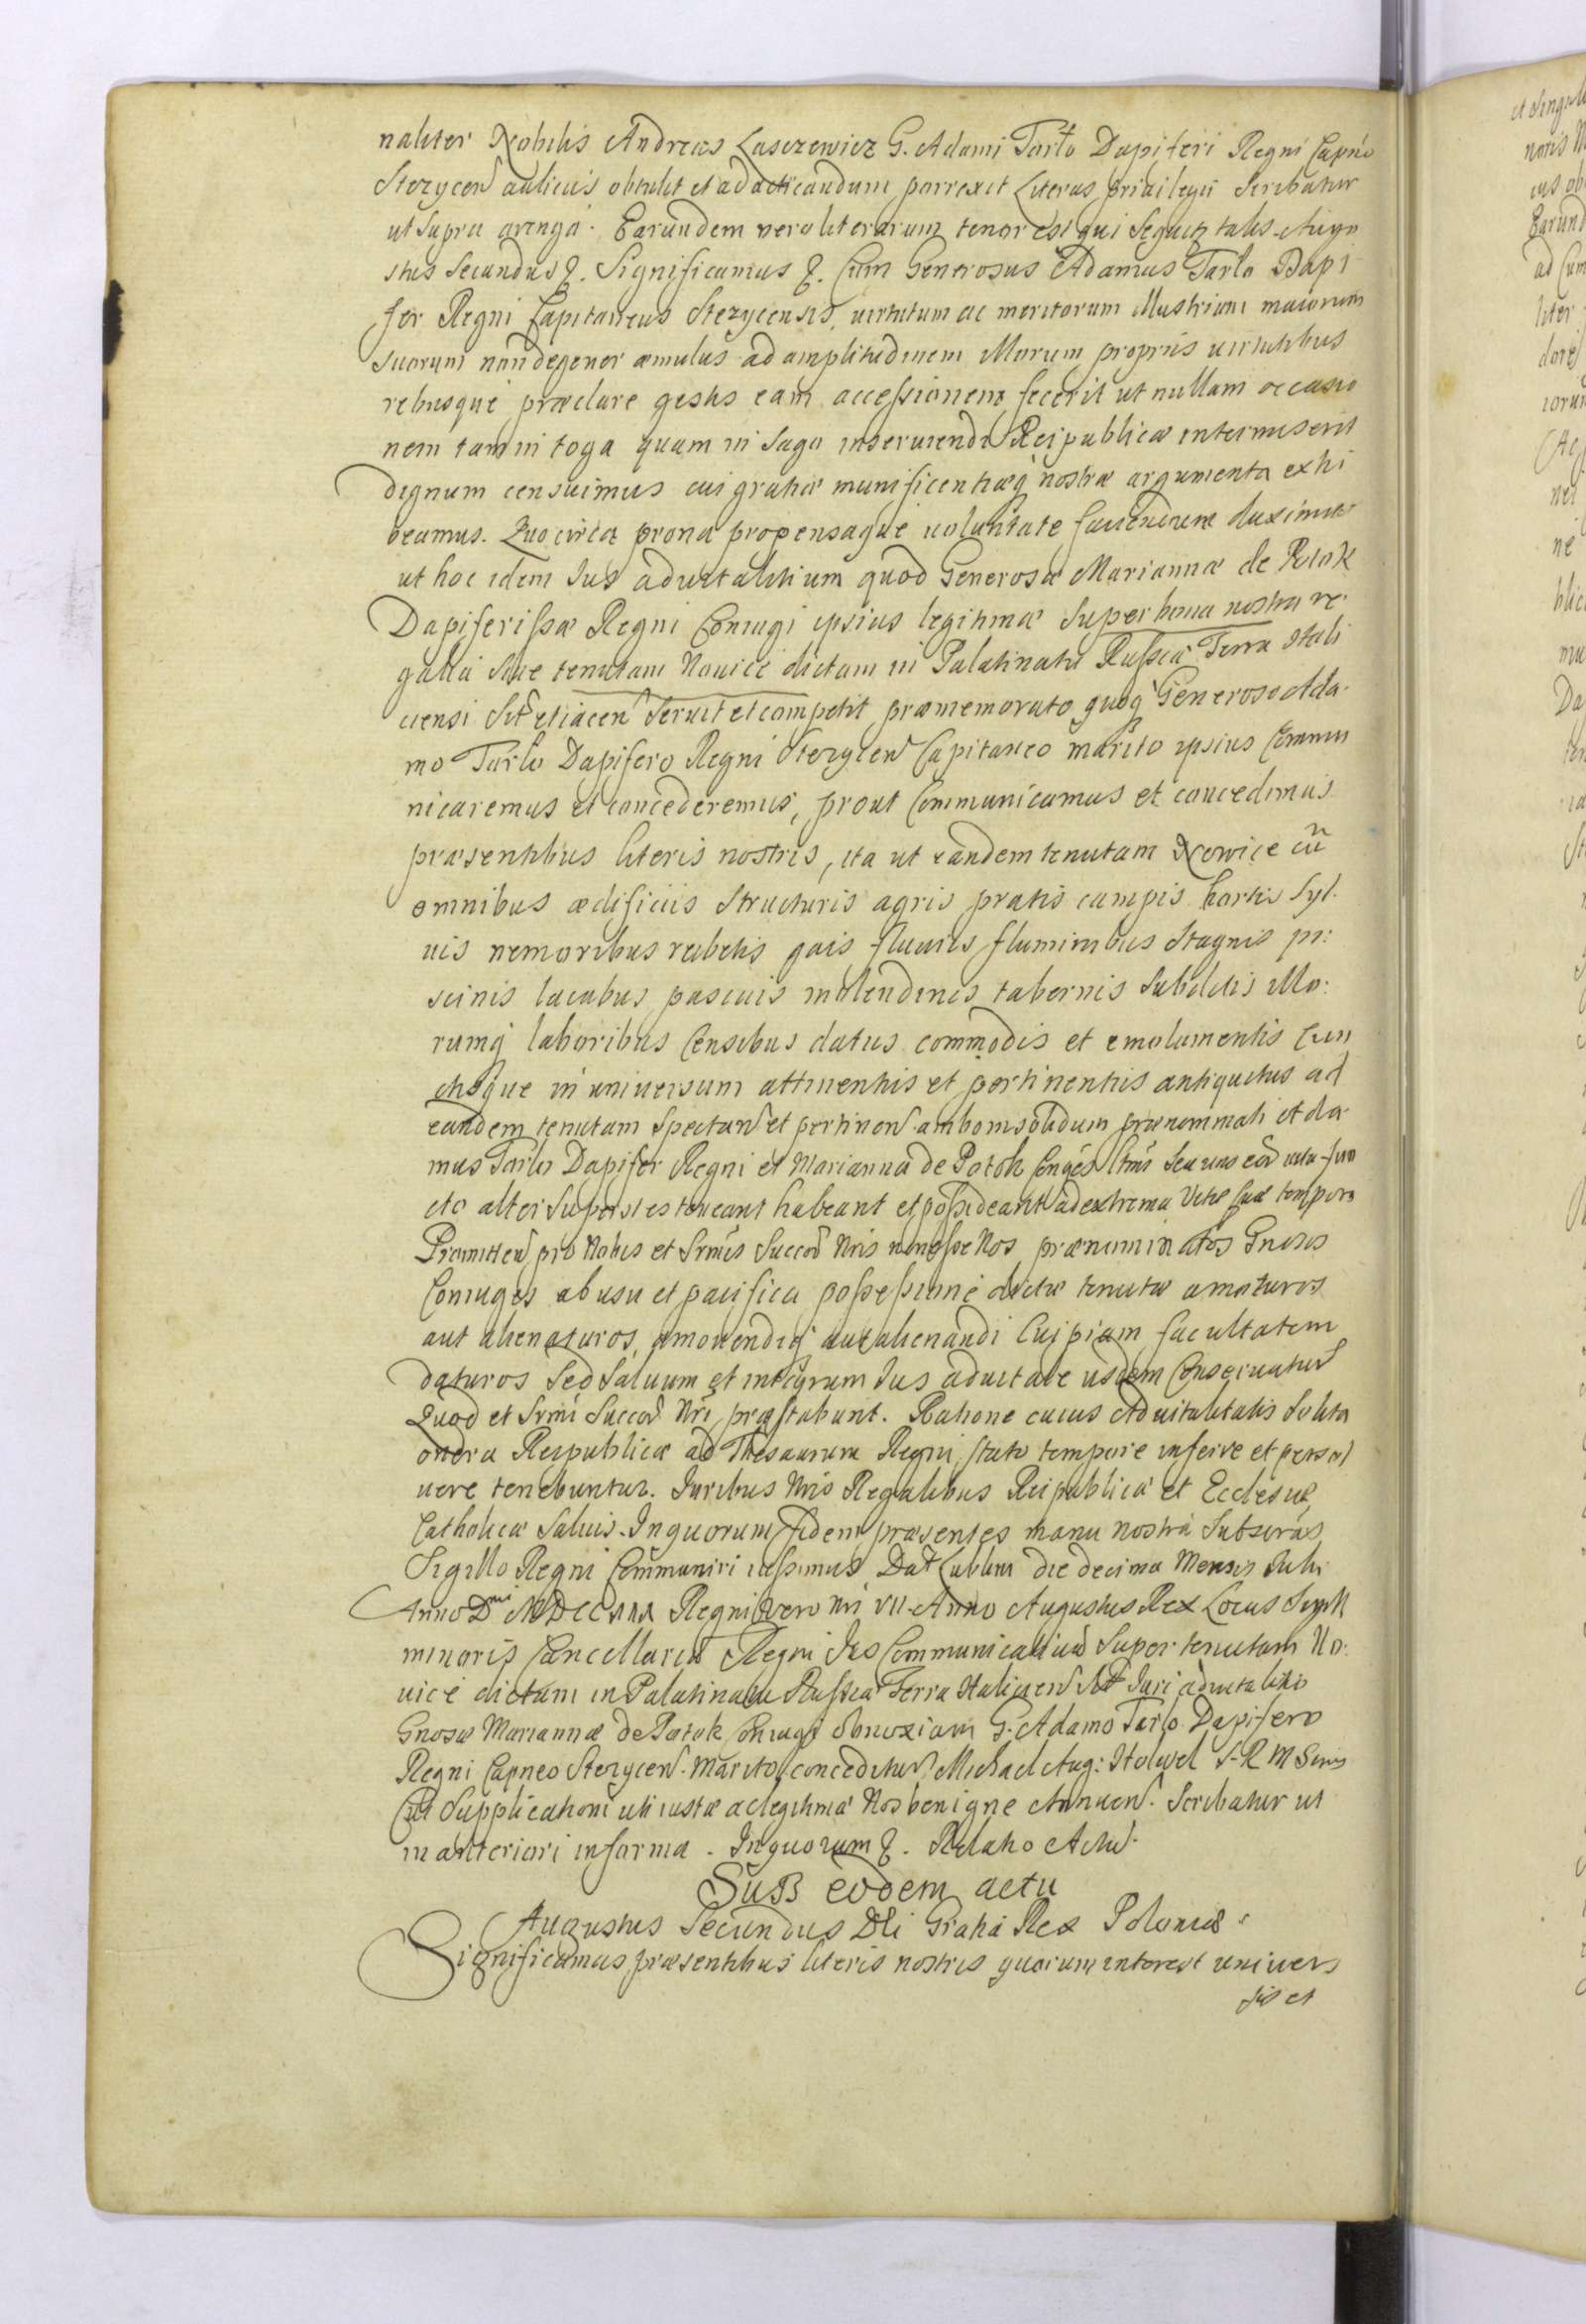 naliter Nobilis Andreas Łasczewicz G. Adami Tarło Dapiferi Regni Capnéo
Stezycen aulicus obtulit et ad acticandum porrexit Literas priuilegii Scribatur
ut supra arenga. Earundem vero literarum tenor est qui sequitr talis Augu
stus Secundus &. Significamus &. Cum Generosus Adamus Tarło Dapi
fer Regni Capitaneus Stezycensis, uirtutum ac meritorum illustrium maiorum
suorum non degener æmulus ad amplitudinem illorum propriis uirtutibus
rebusque præclare gestis eam accessionem fecerit ut nullam occasio
nem tam in toga quam in sago inseruiendi Reipublicæ intermiserit
dignum censuimus cui gratiæ munificentiæq nostræ argumenta exhi
beamus. Quocirca prona propensaque uoluntate fauendum duximus
ut hoc idem Jus aduitalitium quod Generosæ Mariannæ de Potok
Dapiferissæ Regni Coniugi ipsius legitimæ super bona nostra re
galia siue tenutam Nouice dictam in Palatinatu Russiæ Terra Hali
ciensi Sit et iacen seruit et competit præmemorato quoq Generoso Ada-
mo Tarło Dapifero Regni Stezycen Capitaneo marito ipsius Commu
nicaremus et concederemus, prout Communicamus et concedimus
præsentibus literis nostris, ita ut eandem tenutam Nowice cū
omnibus ædificiis structuris agris pratis campis hortis syl-
uis nemoribus rubetis gais fluuiis fluminibus stagnis pi:
scinis lacubus pascuis molendinis tabernis subditis illo:
rumq laboribus Censibus datiis commodis et emolumentis Cun
ctisque in uniuersum attinentiis et pertinentiis antiquitus ad
eandem tenutam spectan et pertinen ambo insolidum prænominati Ada-
mus Tarło Dapifer Regni et Marianna de Potok Conges ltmi seu uno eor uita fun
cto alter superstes teneant habeant et possideant ad extrema Vitæ suæ tempora
Promitten pro Nobis et Srmis Succor Nris non esse Nos prænominatos Gnosos
Coniuges ab usu et pacifica possessione dictæ tenutæ amoturos
aut alienaturos, amouendiq aut alienandi Cuipiam facultatem
daturos Sed Saluum et integrum Jus aduitale iisdem Conseruaturos
Quod et Srmi Succor Nri præstabunt. Ratione cuius Aduitalitatis solita
onera Reipublicæ ad Thesaurum Regni stato tempore inferre et persol
uere tenebuntur. Juribus Nris Regalibus Reipublicæ et Ecclesiæ
Catholicæ saluis. In quorum fidem præsentes manu nostra Subscras
Sigillo Regni Communiri iussimus Dat Lublini die decima Mensis Julii
Anno Dni MDCC Regni vero Nri VII Anno Augustus Rex Locus Sigilli
minoris Cancellariæ Regni Jus Communicatiuum super tenutam No:
uice dictam in Palatinatu Russiæ Terra Halicien Juri aduitalitio
Gnosæ Mariannæ de Potok Coniugi obnoxiam G. Adamo Tarło Dapifero
Regni Capneo Stezycen Marito conceditur Michael Aug: S. R. M.
Cui Supplicationi uti iustæ ac legitimæ Nos benigne Annuen. Scribatur ut
in anteriori in forma. In quorum &. Relatio
Sub eodem actu
Augustus Secundus Dei Gratia Rex Poloniæ
Significamus præsentibus literis nostris quorum interest univers
sis et